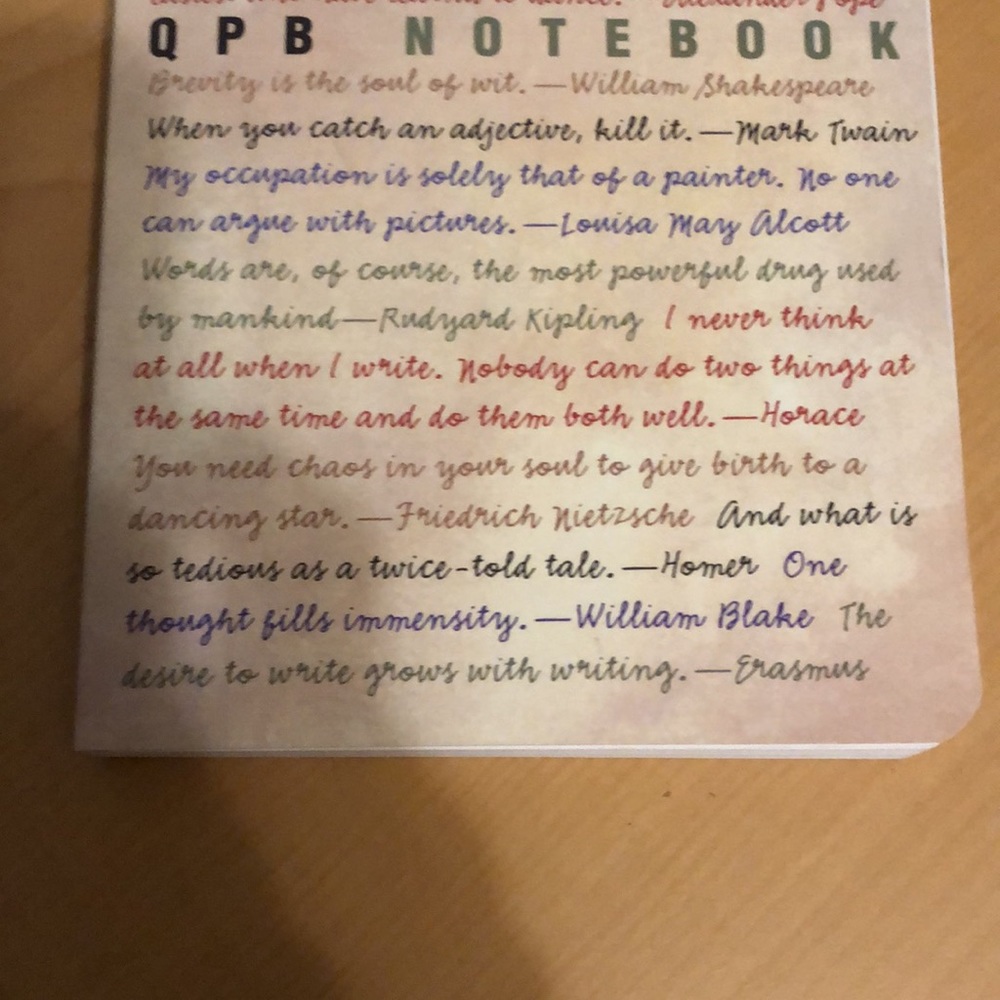 to dance. —Alexander Pope
QPB NOTEBOOK
Brevity is the soul of wit. —William Shakespeare
When you catch an adjective, kill it. —Mark Twain
My occupation is solely that of a painter. No one
can argue with pictures. —Louisa May Alcott
Words are, of course, the most powerful drug used
by mankind—Rudyard Kipling I never think
at all when I write. Nobody can do two things at
the same time and do them both well. —Horace
You need chaos in your soul to give birth to a
dancing star. —Friedrich Nietzsche And what is
so tedious as a twice-told tale. —Homer One
thought fills immensity. —William Blake The
desire to write grows with writing. —Erasmus